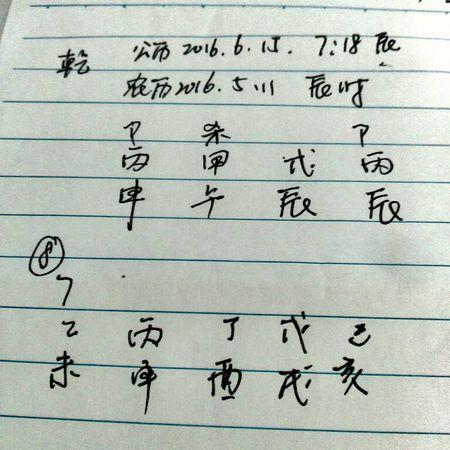 乾 公历2016.6.15. 7:18 辰
农历2016.5.11 辰时
卩 杀 卩
丙 甲 戊 丙
申 午 辰 辰
8
7
乙 丙 丁 戊 己
未 申 酉 戌 亥